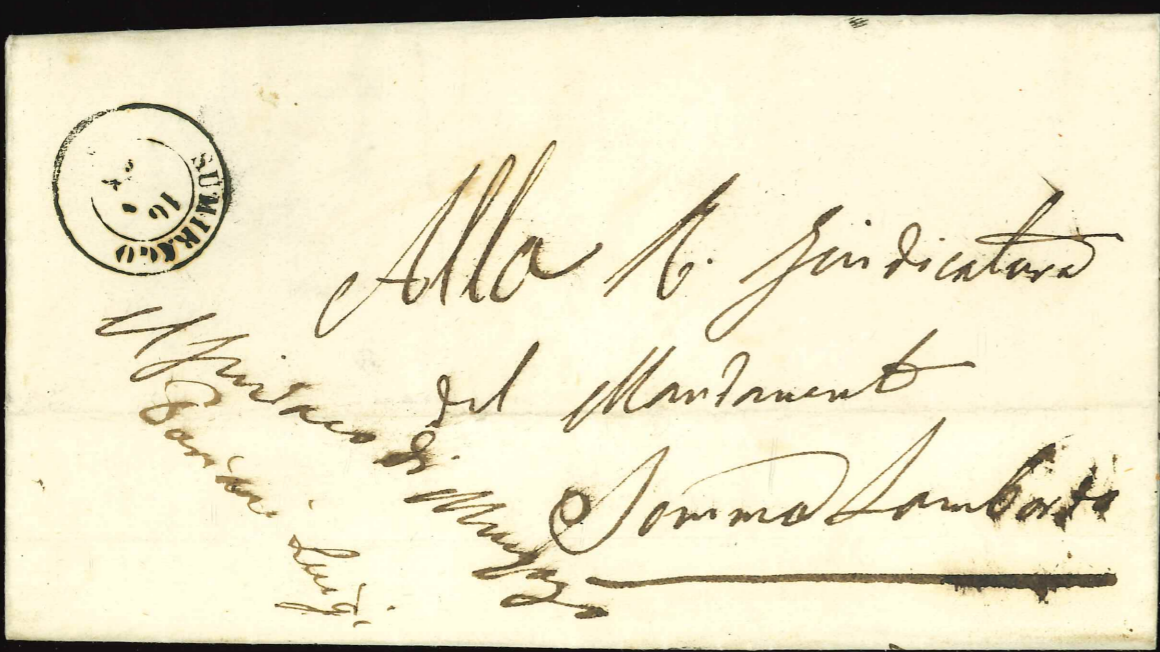 SUMIRAGO
16
Alla R. Giudicatura
del Mandamento
Somma Lombardo
Il Sindaco di
Luigi